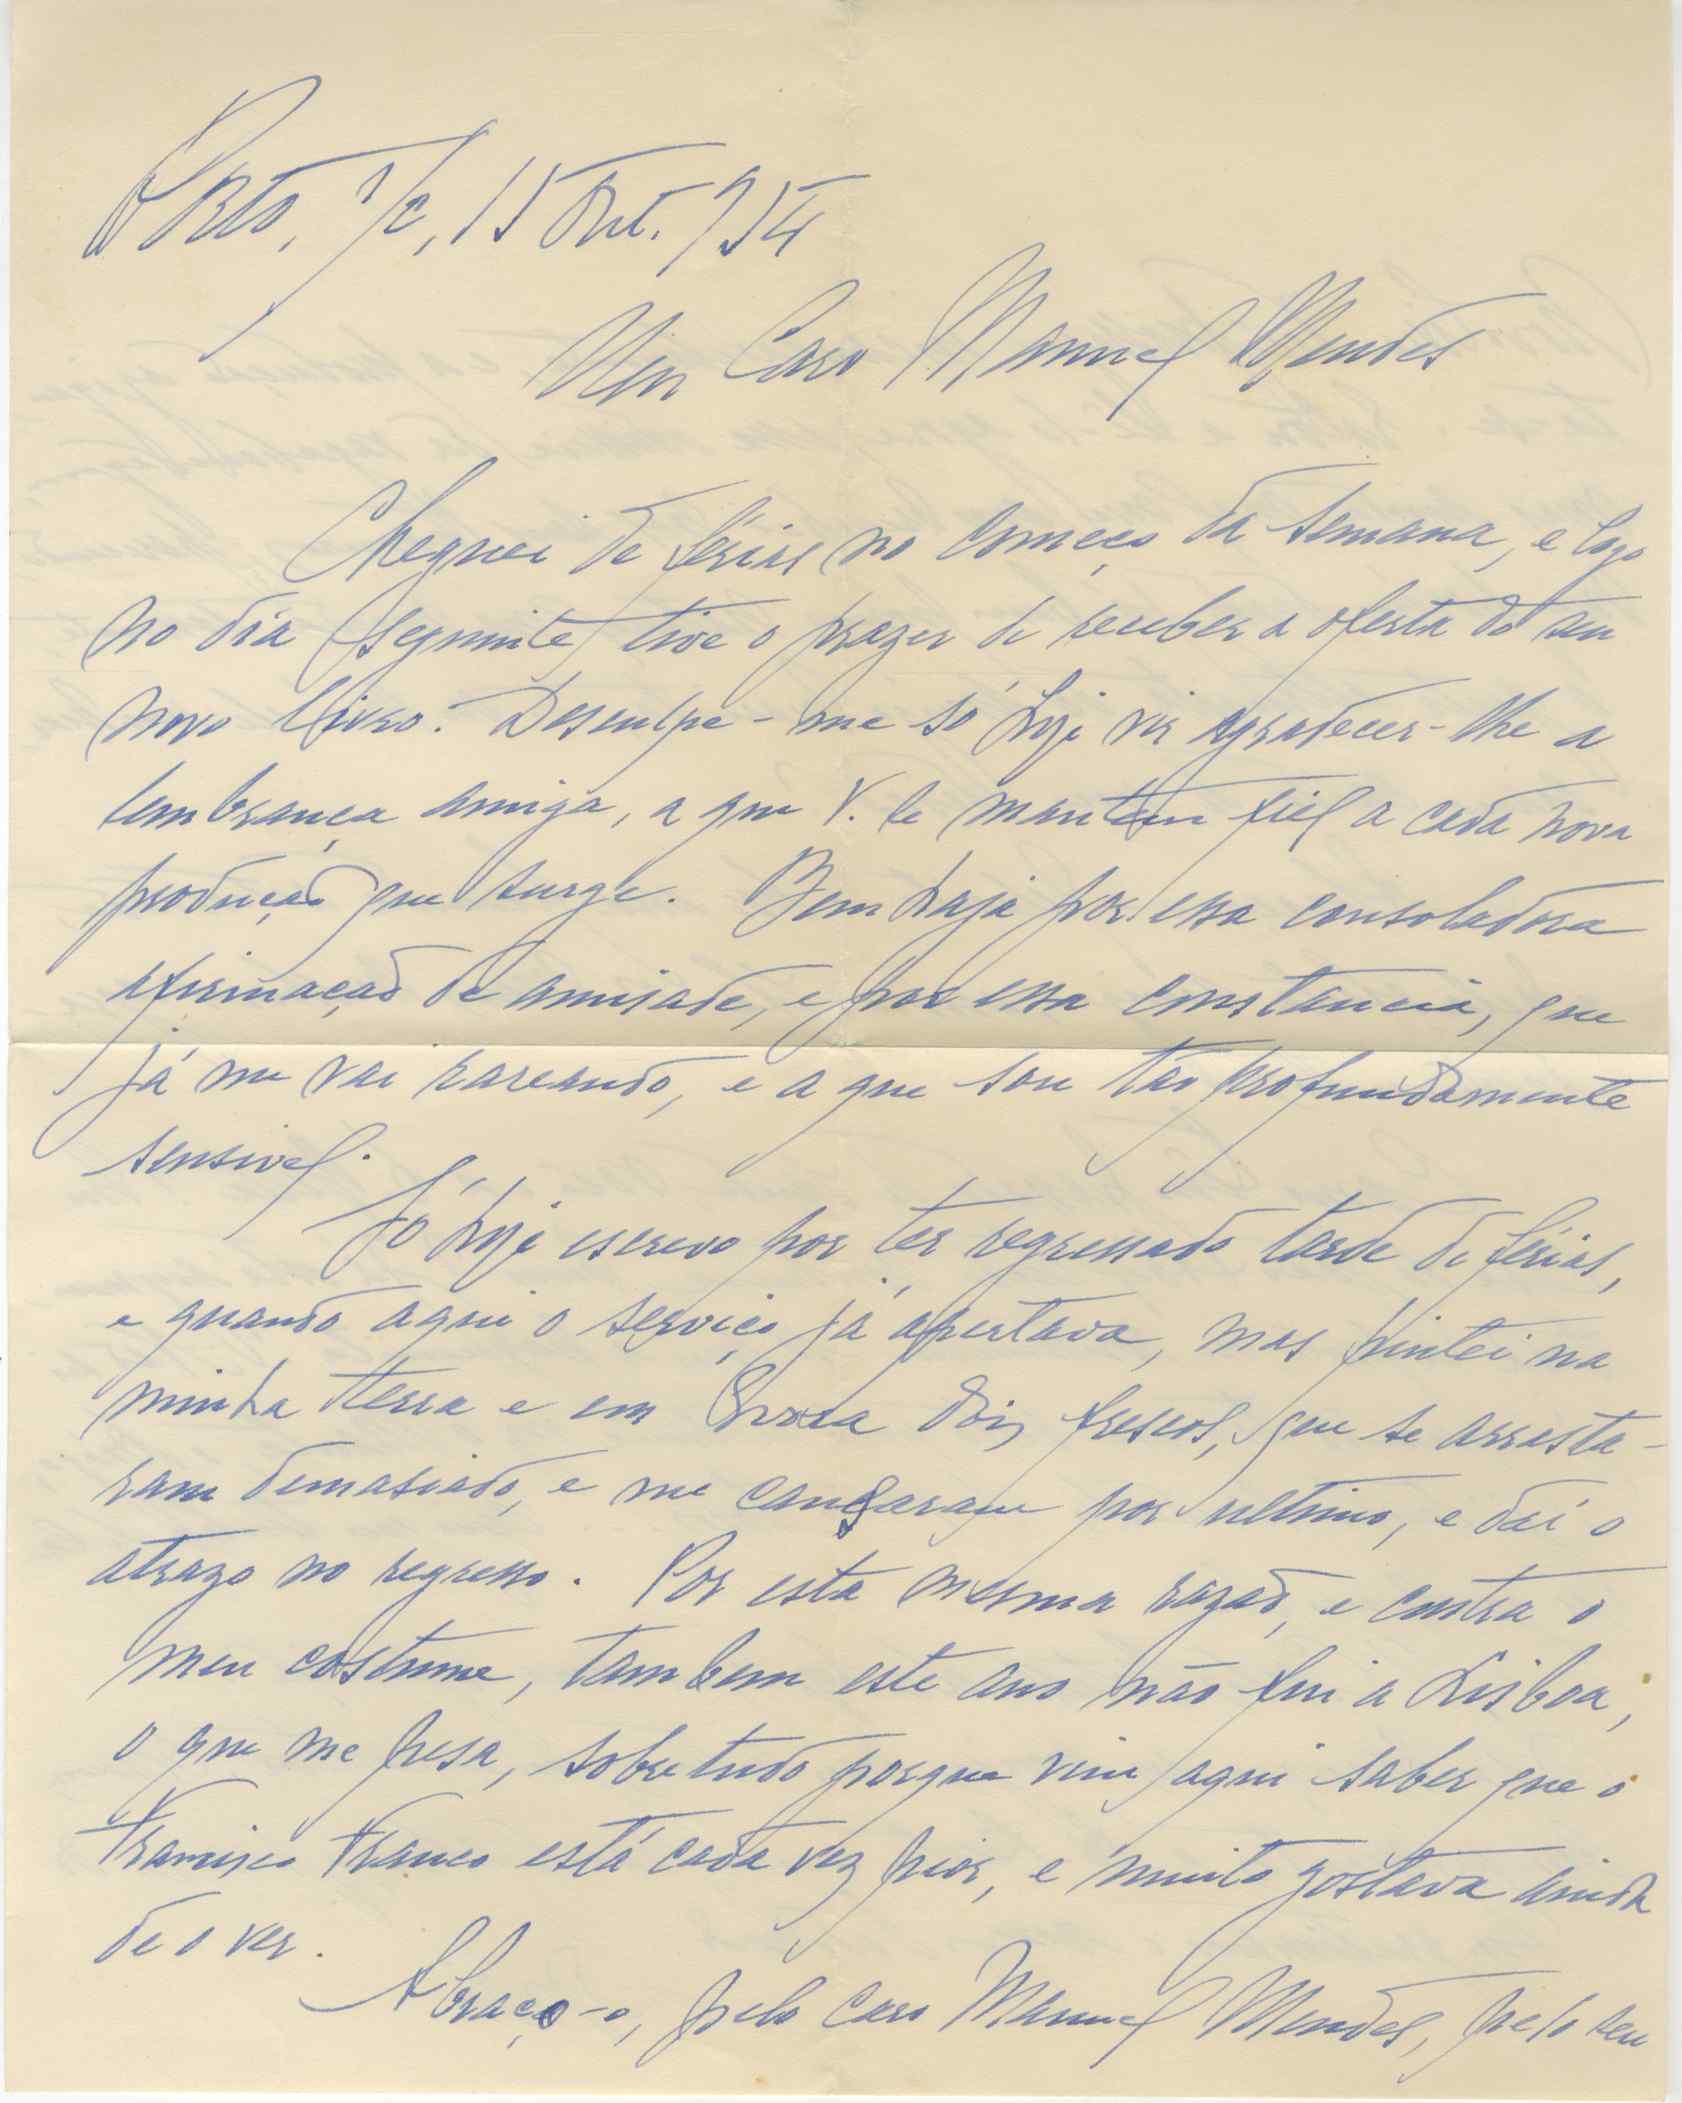 Porto, s/c, 15 Out. 954
Meu Caro Manuel Mendes
Cheguei de férias no começo da semana, e logo
no dia seguinte tive o prazer de receber a oferta do seu
novo livro. Desculpe-me só hoje vir agradecer-lhe a
lembrança amiga, a que V. se mantem fiel a cada nova
produção que surge. Bem haja por essa consoladora
afirmação de amisade, e por essa constancia, que
já me vai rareando, e a que sou tão profundamente
sensivel.
Só hoje escrevo por ter regressado tarde de férias,
e quando aqui o serviço já apertava, mas pintei na
minha terra e em dois frescos, que se arrasta-
ram demasiado, e me cansaram por ultimo, e daí o
atrazo no regresso. Por esta mesma razão, e contra o
meu costume, tambem este ano não fui a Lisboa,
o que me pesa, sobretudo porque vim aqui saber que o
Francisco Franco está cada vez pior, e muito gostava ainda
de o ver.
Abraço-o, pelo caro Manuel Mendes, pelo seu